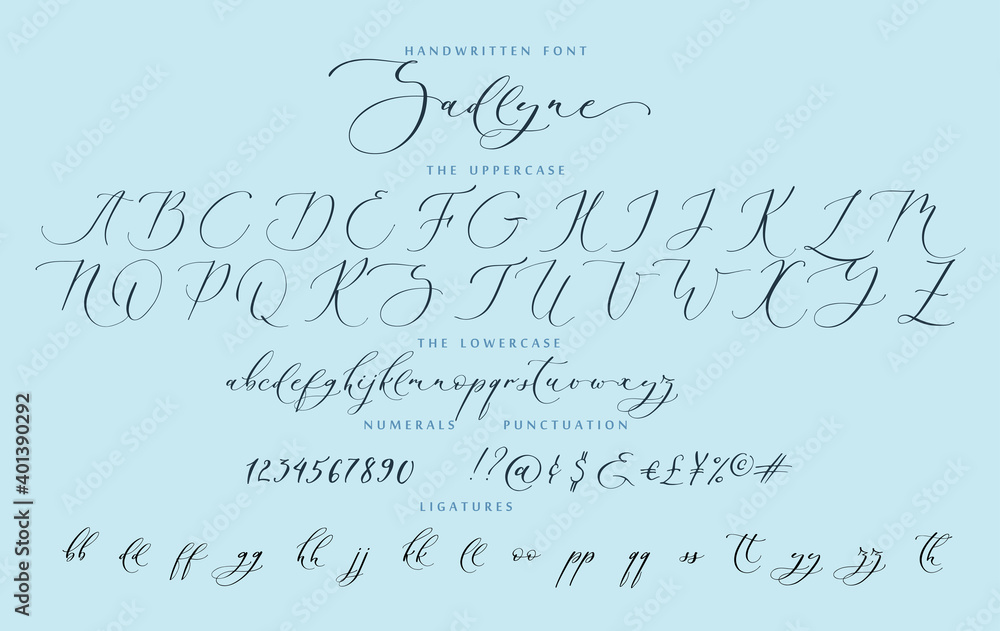 HANDWRITTEN FONT
Sadlyne
THE UPPERCASE
A B C D E F G H I J K L M
N O P Q R S T U V W X Y Z
THE LOWERCASE
abcdefghijklmnopqrstuvwxyz
NUMERALS PUNCTUATION
1234567890 !?@¢$&€£¥%©#
LIGATURES
bb dd ff gg hh jj kk ll oo pp qq ss tt yy zz th
Adobe Stock | #401390292